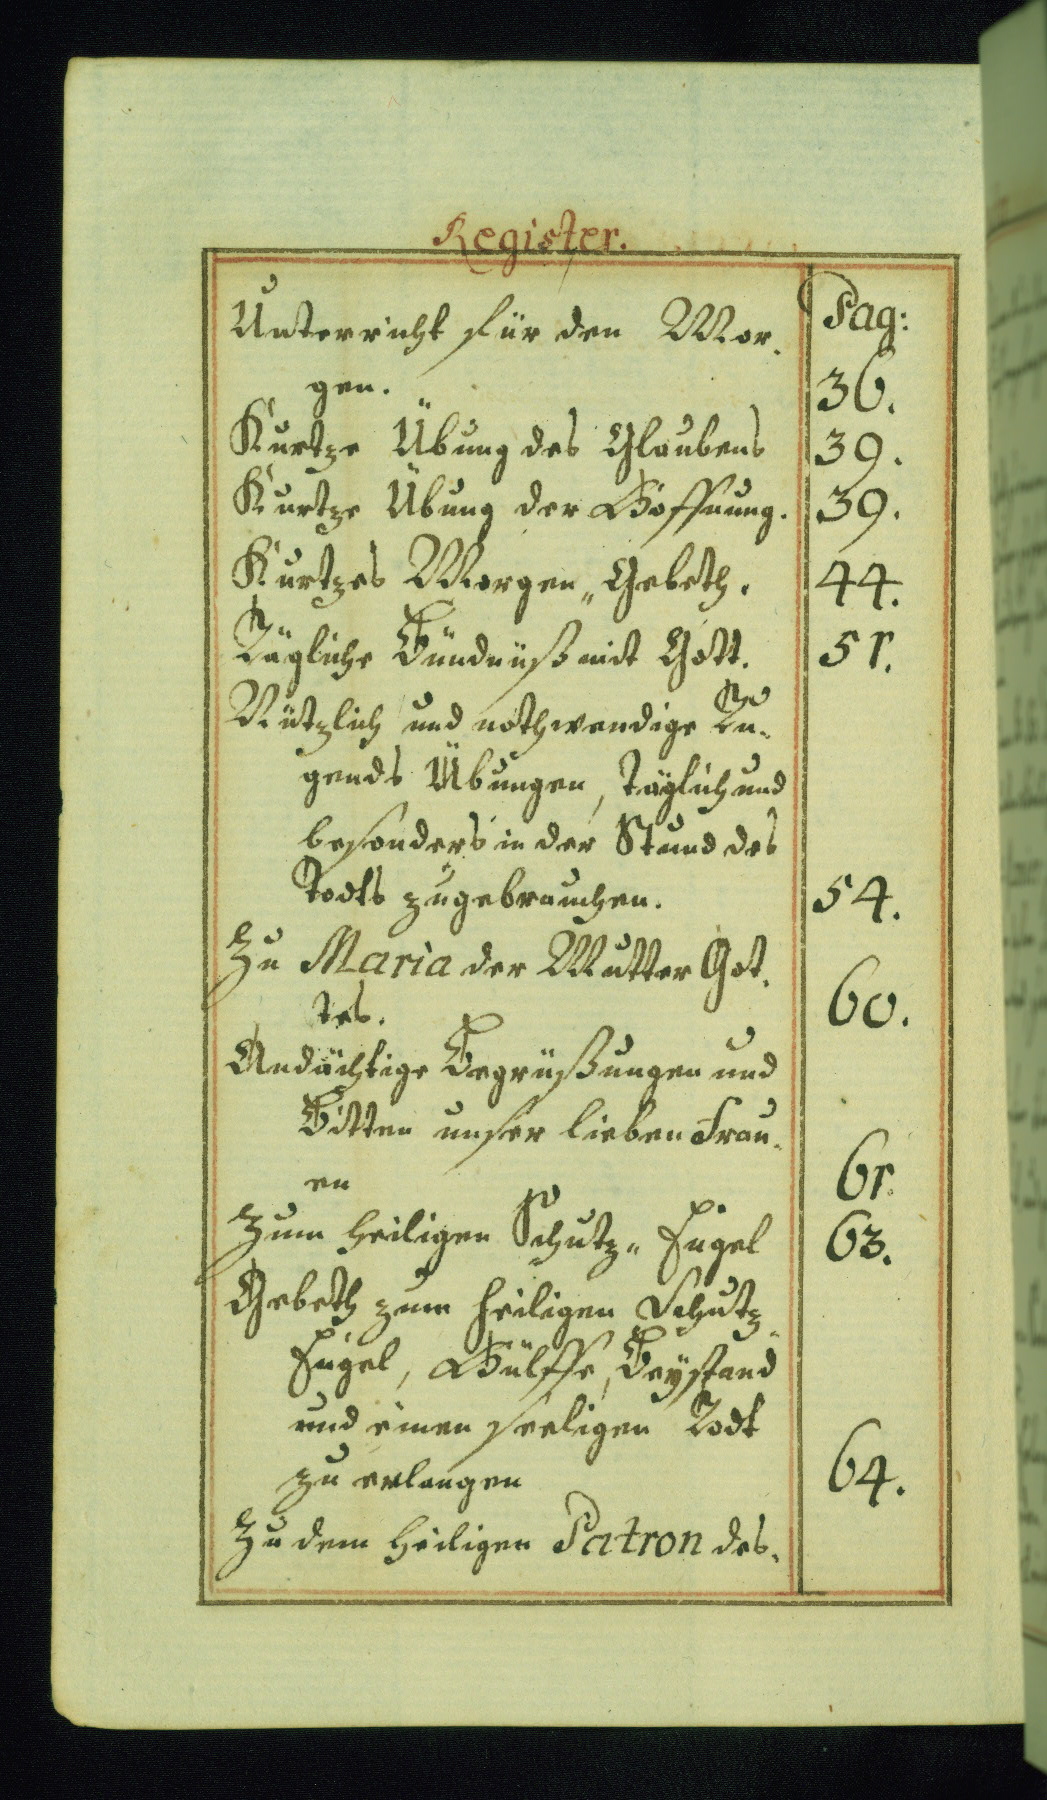 Register.
Unterricht für den Mor- Pag:
gen. 36.
Kurtze Übung des Glaubens 39.
Kurtze Übung der Hoffnung. 39.
Kurtzes Morgen„Gebeth. 44.
Tägliche Bündnüß mit Gott. 51.
Nützlich und nothwendige Tu-
gends Übungen, Täglich und
besonders in der Stund des
Todts zugebrauchen. 54.
Zu Maria der Mutter Got-
tes. 60.
Andächtige Begrüßungen und
Bitten unser lieben Frau-
en 61.
Zum heiligen Schutz„Engel 63.
Gebeth zum heiligen Schutz-
Engel, Hülffe, Beystand
und einen seeligen Todt
zu erlangen 64.
Zu dem heiligen Patron des-